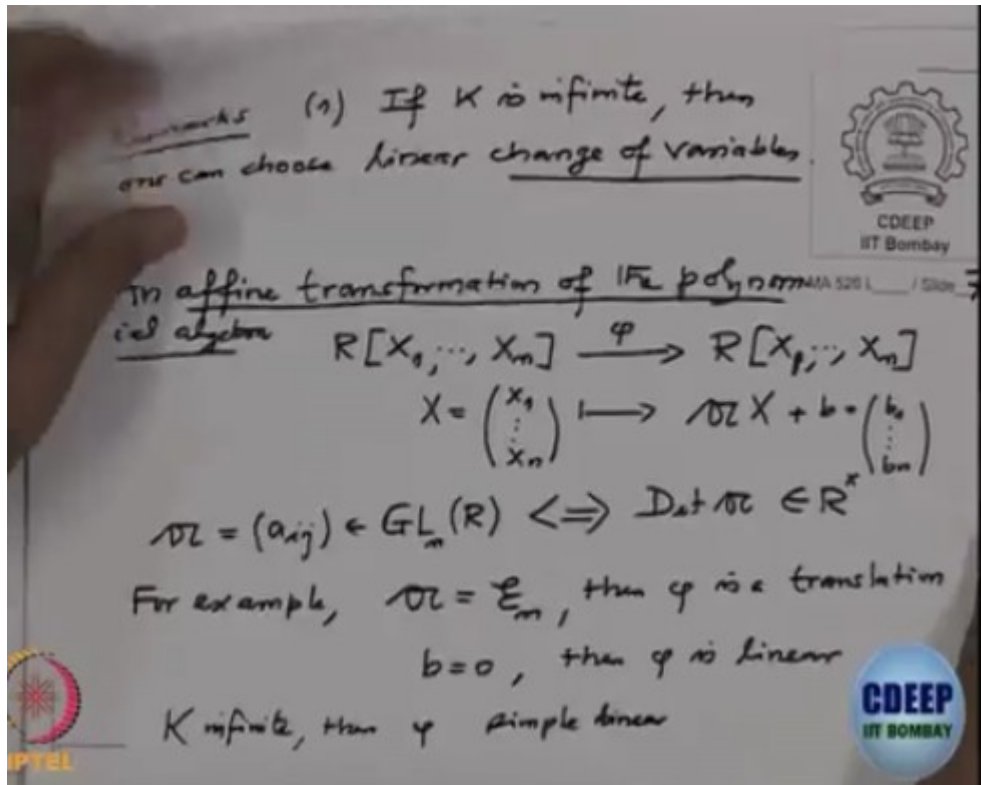 Remarks (1) If K is infinite, then
one can choose linear change of variables.
CDEEP
IIT Bombay
In affine transformation of the polynom
MA 526 L____ / Slide
ial algebra
R[X₁,…, Xₙ] —φ→ R[X₁,…, Xₙ]
X = (X₁ ⋮ Xₙ) ↦ 𝔄X + b = (b₁ ⋮ bₙ)
𝔄 = (aᵢⱼ) ∈ GLₙ(R) <=> Det 𝔄 ∈ Rˣ
For example, 𝔄 = Ɛₙ, then φ is a translation
b = 0, then φ is linear
K infinite, then φ simple linear
CDEEP
IIT BOMBAY
PTEL